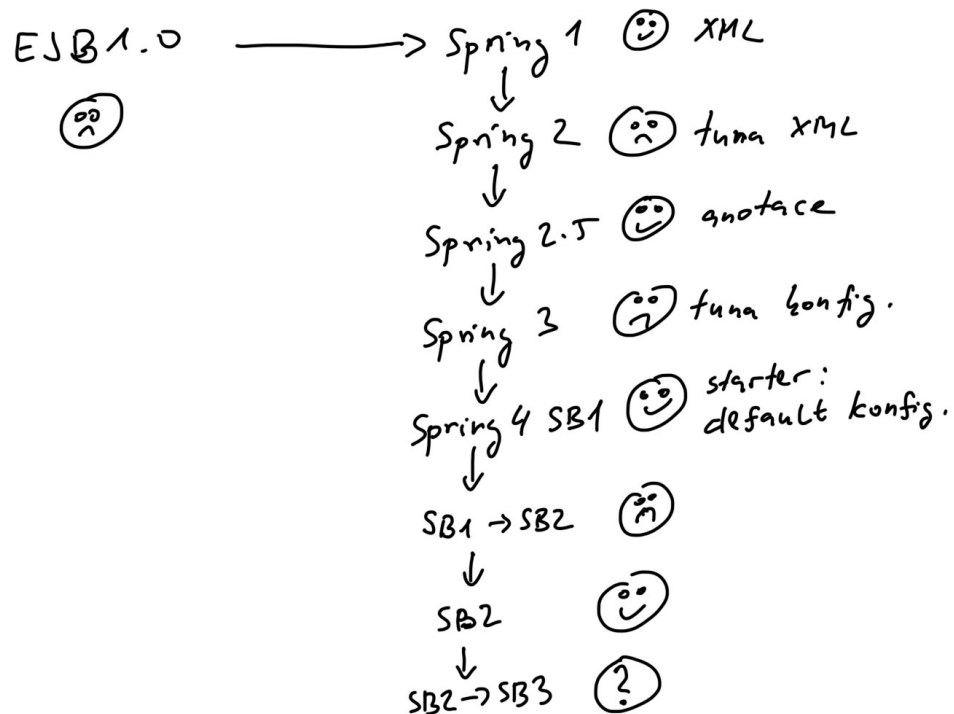 EJB1.0 → Spring 1 XML
Spring 2 tuna XML
Spring 2.5 anotace
Spring 3 tuna konfig.
starter:
Spring 4 SB1 default konfig.
SB1 → SB2
SB2
SB2 → SB3 ?